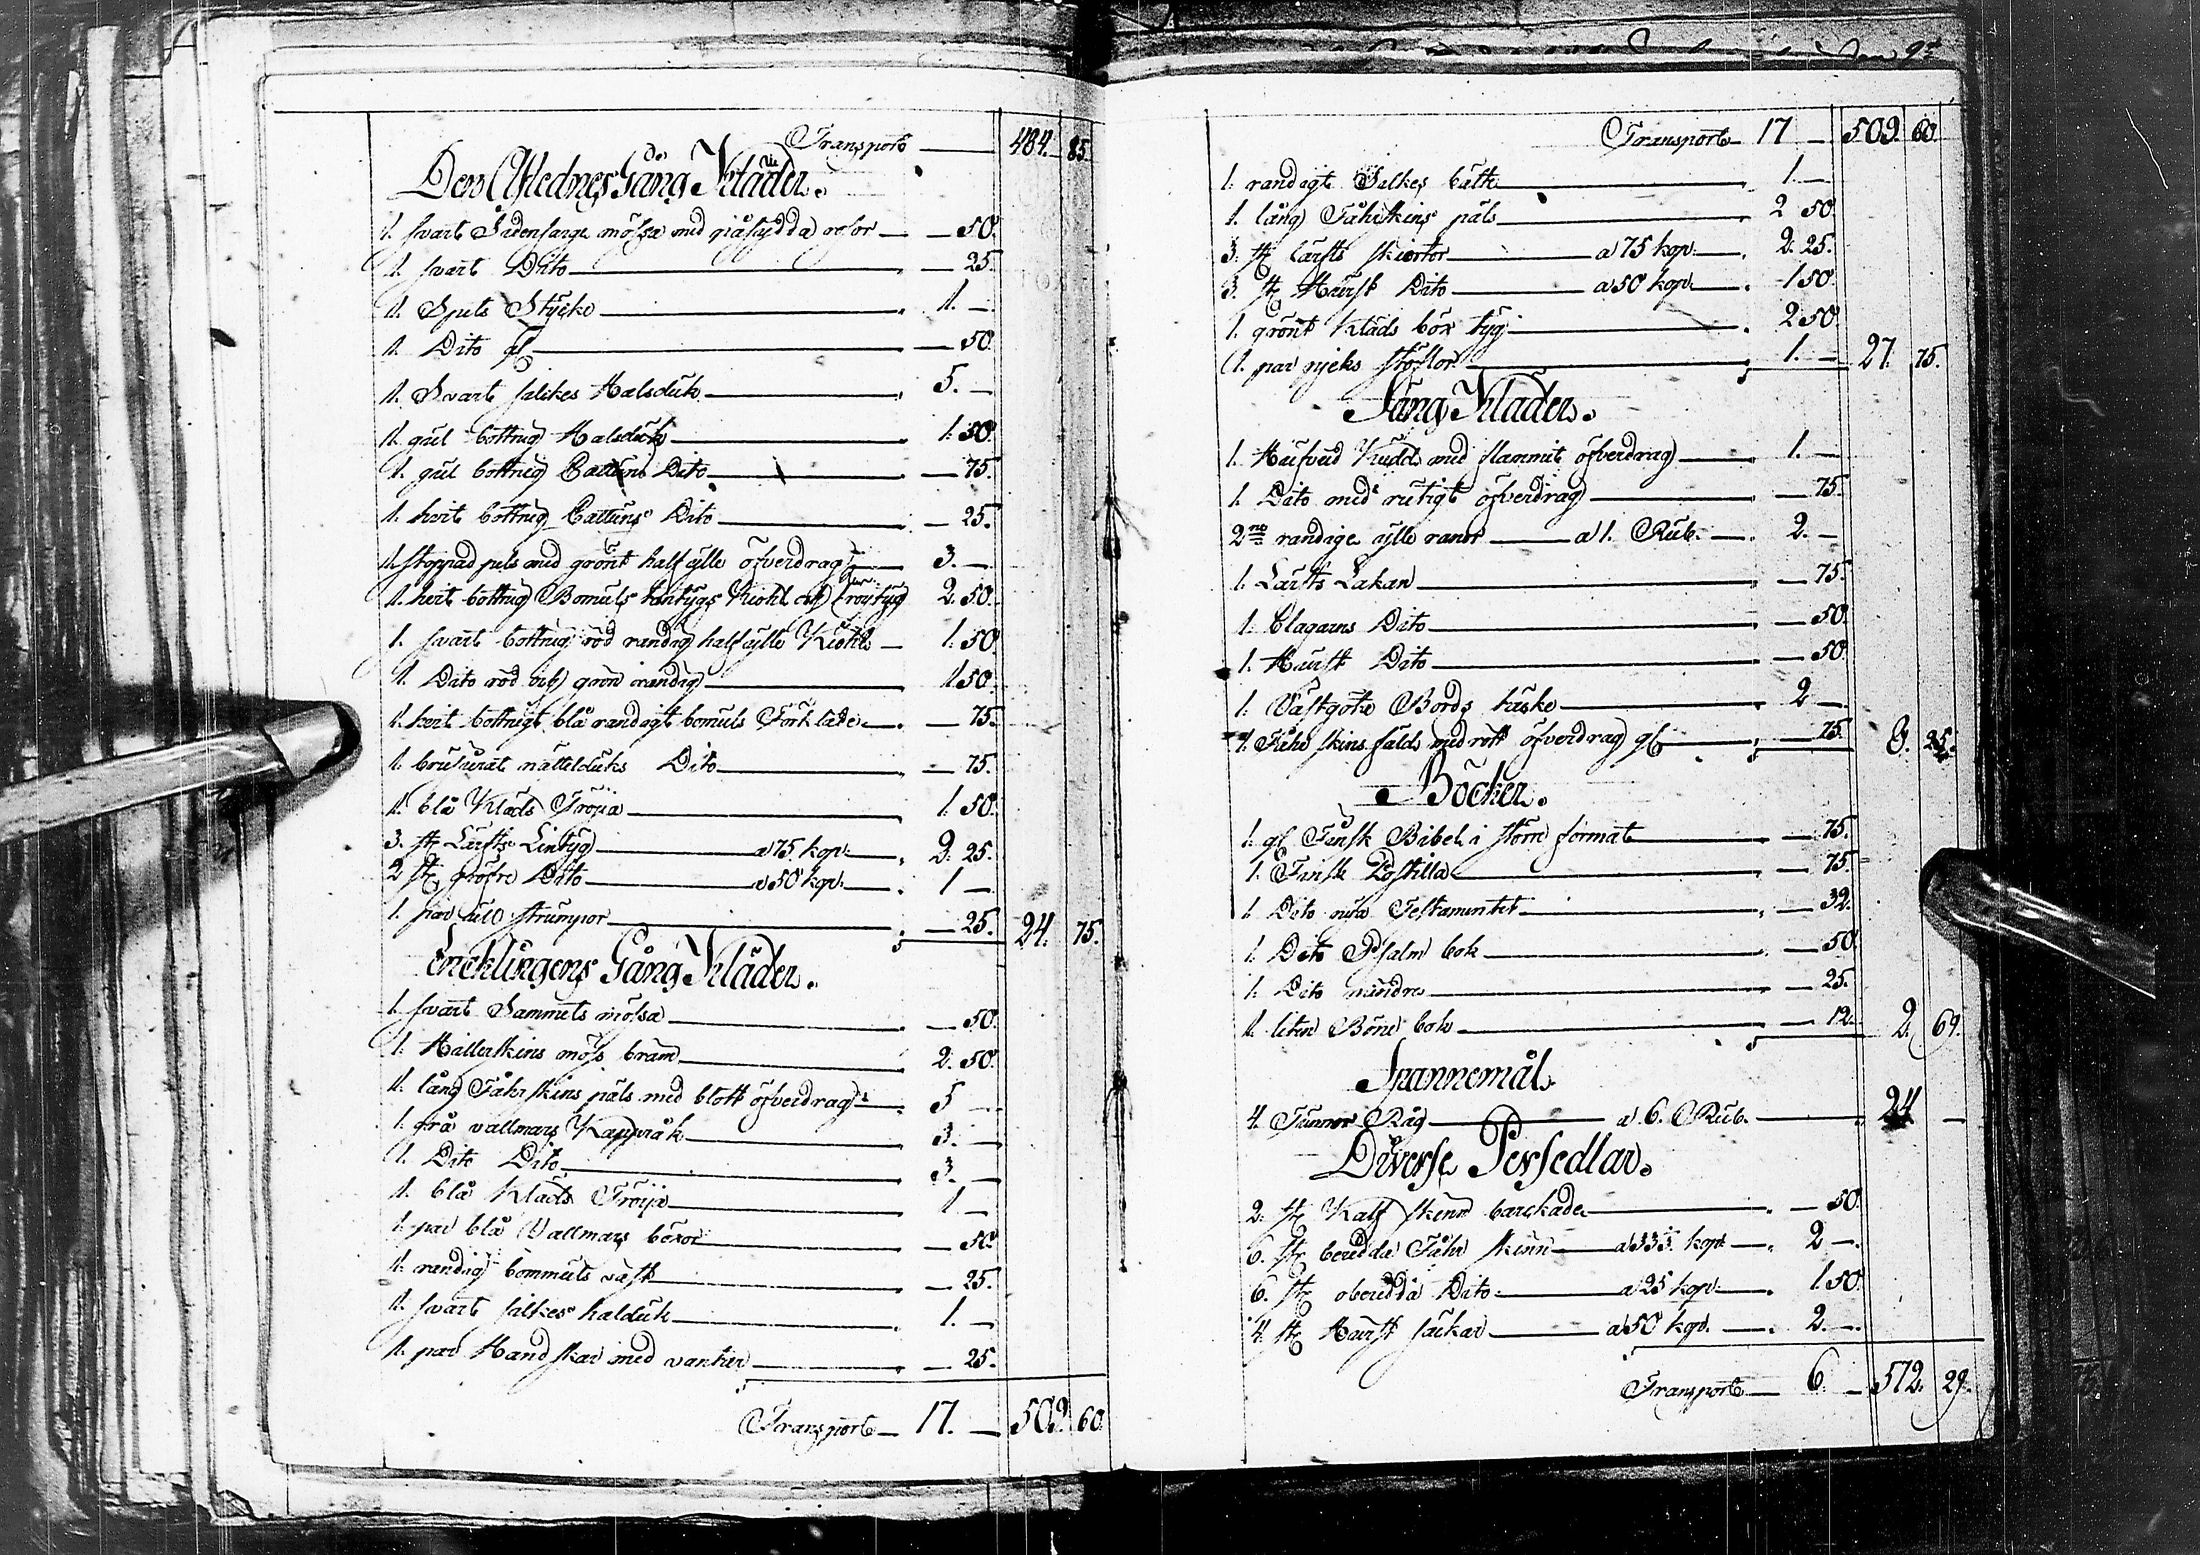 Transport — 484. 85.
Den Aflednes Gång Kläder.
1. svart Sidensarge mössa med påsydda rosor — 50.
1. svart Dito — 25.
1. Spets Stycke — 1. —
1. Dito gl — 50.
1. Svart silkes Halsduk — 5. —
1. gul bottnig Halsduk — 1. 50.
1. gul bottnig Cattuns Dito — 75.
1. hvit bottnig Cattuns Dito — 25.
1. stoppad pels med grönt halfylle öfverdrag — 3. —
1. hvit bottnig Bomuls Kiohl och tröytyg 2. 50.
1. svart bottnig röd randig halfylle Kiohl — 1. 50.
1. Dito röd och grön randig — 1. 50.
1. hvit bottnigt blå randigt bomuls Förkläde — 75.
1. brusurat nättelduks Dito — 75.
1. blå Kläds Tröija — 1. 50.
3. st Lärfts Lintyg — a 75 kop. — 2. 25.
2 st gröfre Dito — a 50 kop. — 1 —
1. par ull strumpor — 25. 24. 75.
Encklingens Gång Kläder.
1. svart Sammets mössa — 50.
1. Hällerskins möss bräm — 2. 50.
1. lång Fåhrskins päls med blott öfverdrag — 5 —
1. grå vallmars Kappråk — 3. —
1. Dito Dito — 3. —
1. blå Kläds Tröija — 1 —
1. par blå Vallmars böxor — 50.
1. randig bommuls väst — 25.
1. svart silkes halsduk — 1. —
1. par Handskar med vantar — 25.
Transport — 17. — 509. 60.
Transport — 17 — 509. 60.
1. randigt Silkes bälte — 1. —
1. lång Fåhrskins päls — 2 50.
3. st lärfts skiortor — a 75 kop. — 2. 25.
3. st Hurst Dito — a 50 kop. — 1 50.
1. grönt Kläds böx tyg — 2 50.
1. par pjeks stöflor — 1. — 27. 75.
Säng Kläder.
1. Hufvud Kudd med flammit öfverdrag — 1. —
1. Dito med rutigt öfverdrag — 75.
2ne randige ylle ranor — a 1. Rub. — 2. —
1. Lärfts Lakan — 75.
1. Blagarns Dito — 50.
1. Hurst Dito — 50.
1. Västgöta Bords — 2 —
1. Fåhrskins fäld med rött öfverdrag gl — 75. 8. 25.
Böcker.
1. gl Finsk Bibel i större format — 75.
1. Finsk Postilla — 75.
1. Dito nya Testamentet — 32.
1. Dito Psalm bok — 50.
1. Dito mindre — 25.
1. liten Böne bok — 12. 2. 69.
Spannemål.
4. Tunnor Råg — a 6. Rub. — 24 —
Diverse Persedlar.
2. st Kalf skinn barckade — 50.
6. st beredda Fåhr skinn — a 33⅓ kop. — 2 —
6. st oberedda Dito — a 25 kop. — 1 50.
4. st Hurst säckar — a 50 kop. — 2. —
Transport — 6. — 572. 29.